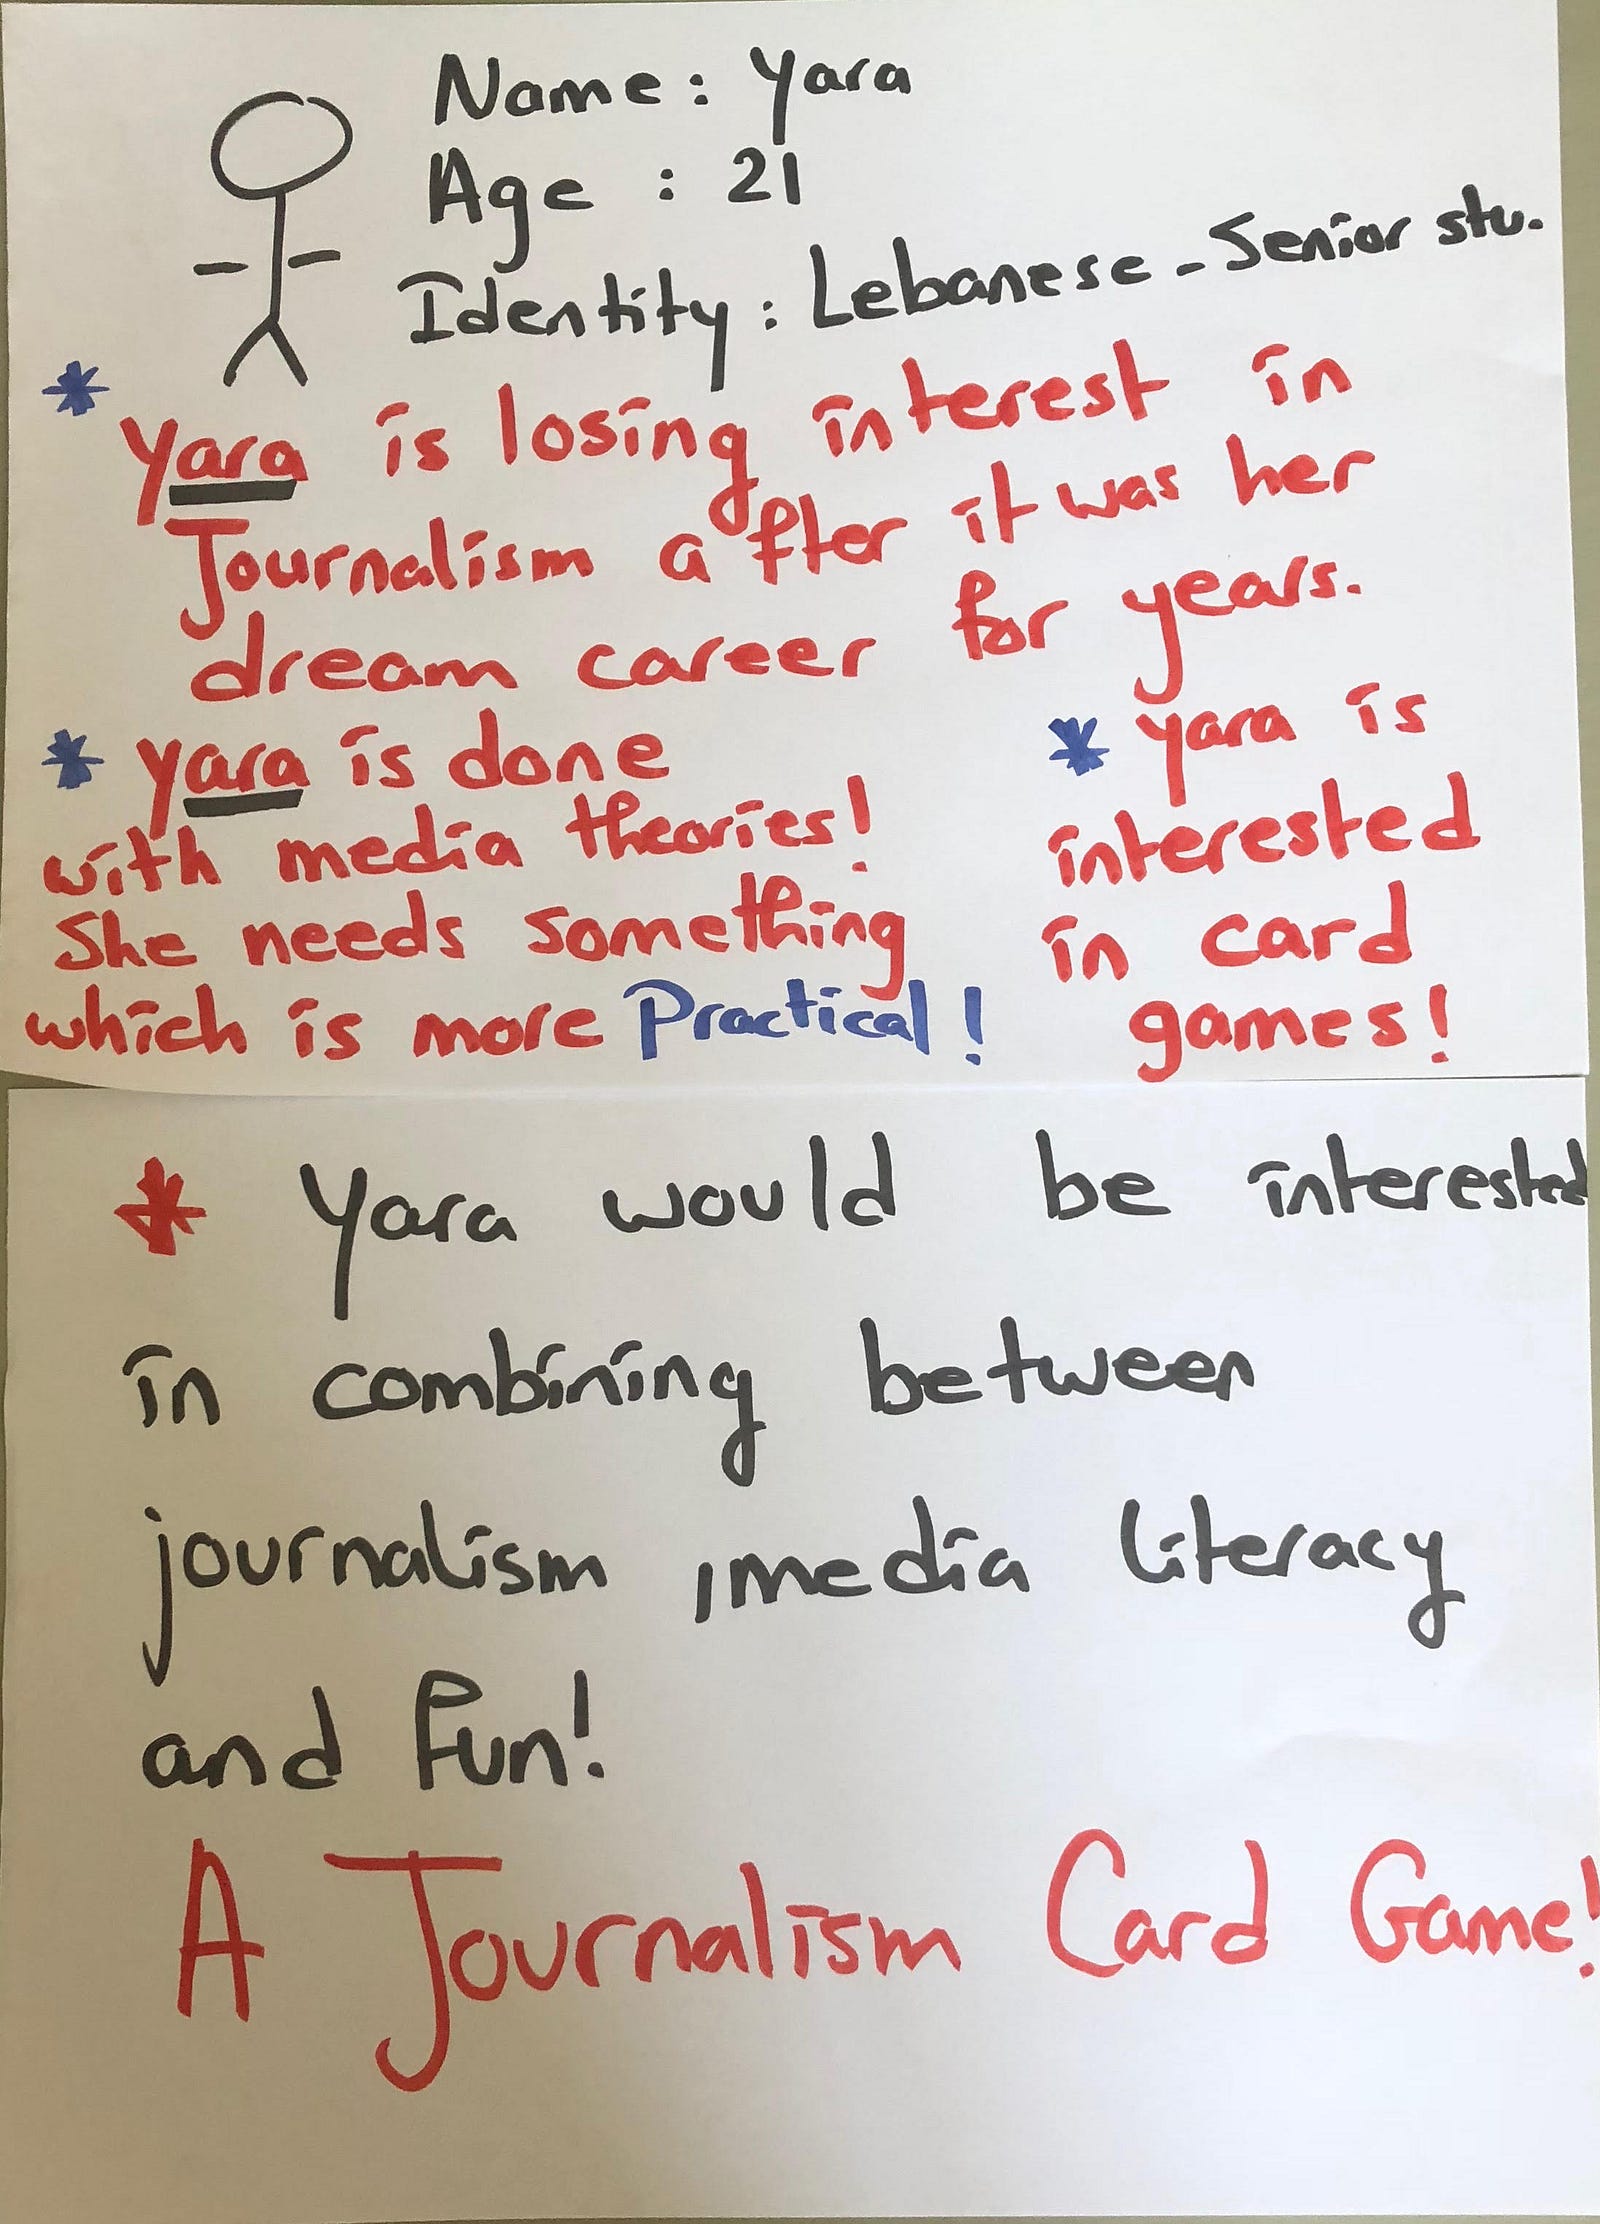 Name: Yara
Age : 21
Identity: Lebanese - Senior stu.
* Yara is losing interest in
Journalism after it was her
dream career for years.
* Yara is done
with media theories!
She needs something
which is more Practical!
* Yara is
interested
in card
games!
* Yara would be interested
in combining between
journalism, media literacy
and fun!
A Journalism Card Game!